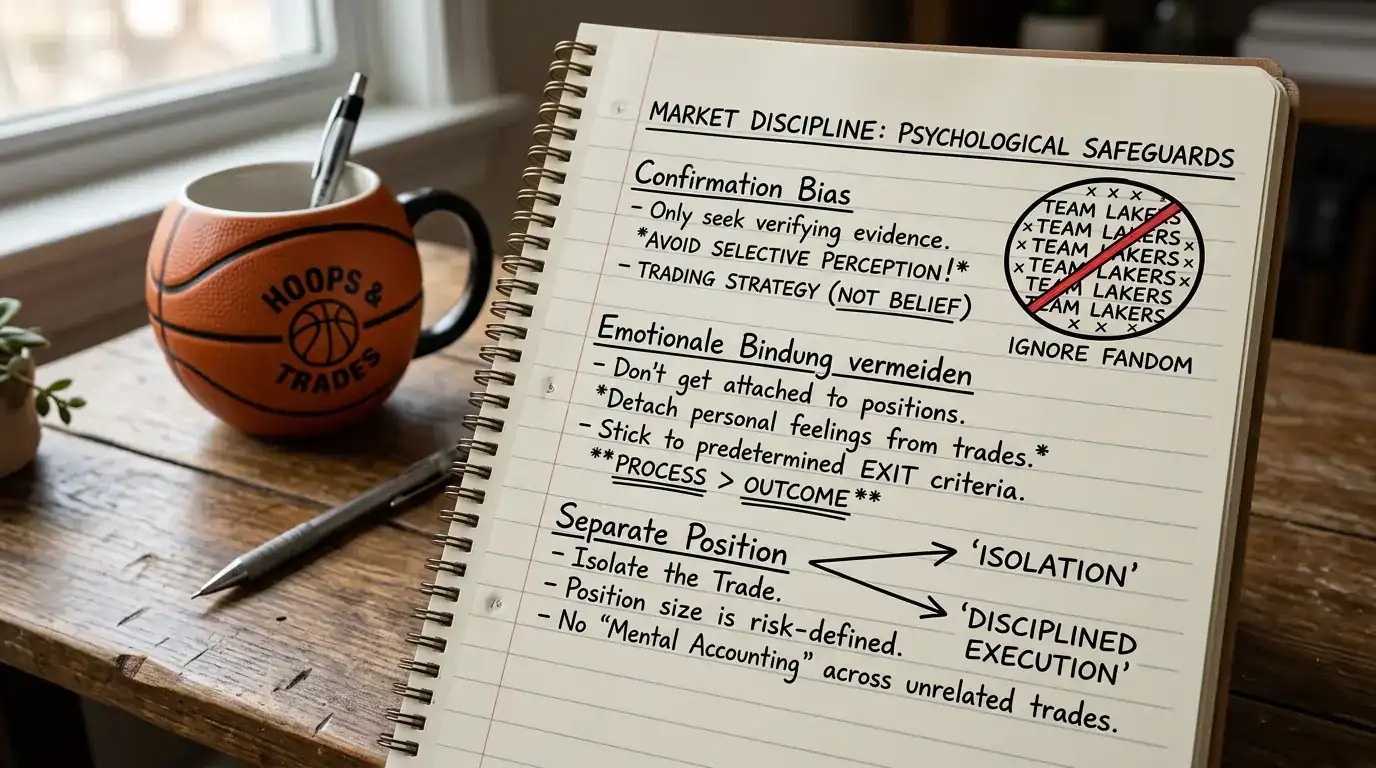 HOOPS &
TRADES
MARKET DISCIPLINE: PSYCHOLOGICAL SAFEGUARDS
Confirmation Bias
- Only seek verifying evidence.
*AVOID SELECTIVE PERCEPTION!*
- TRADING STRATEGY (NOT BELIEF)
x x x x
TEAM LAKERS
x TEAM LAKERS
x TEAM LAKERS x
x TEAM LAKERS x
TEAM LAKERS
TEAM LAKERS
x x x
IGNORE FANDOM
Emotionale Bindung vermeiden
- Don't get attached to positions.
*Detach personal feelings from trades.*
- Stick to predetermined EXIT criteria.
**PROCESS > OUTCOME**
Separate Position
- Isolate the Trade.
- Position size is risk-defined.
- No "Mental Accounting" across unrelated trades.
'ISOLATION'
'DISCIPLINED
EXECUTION'